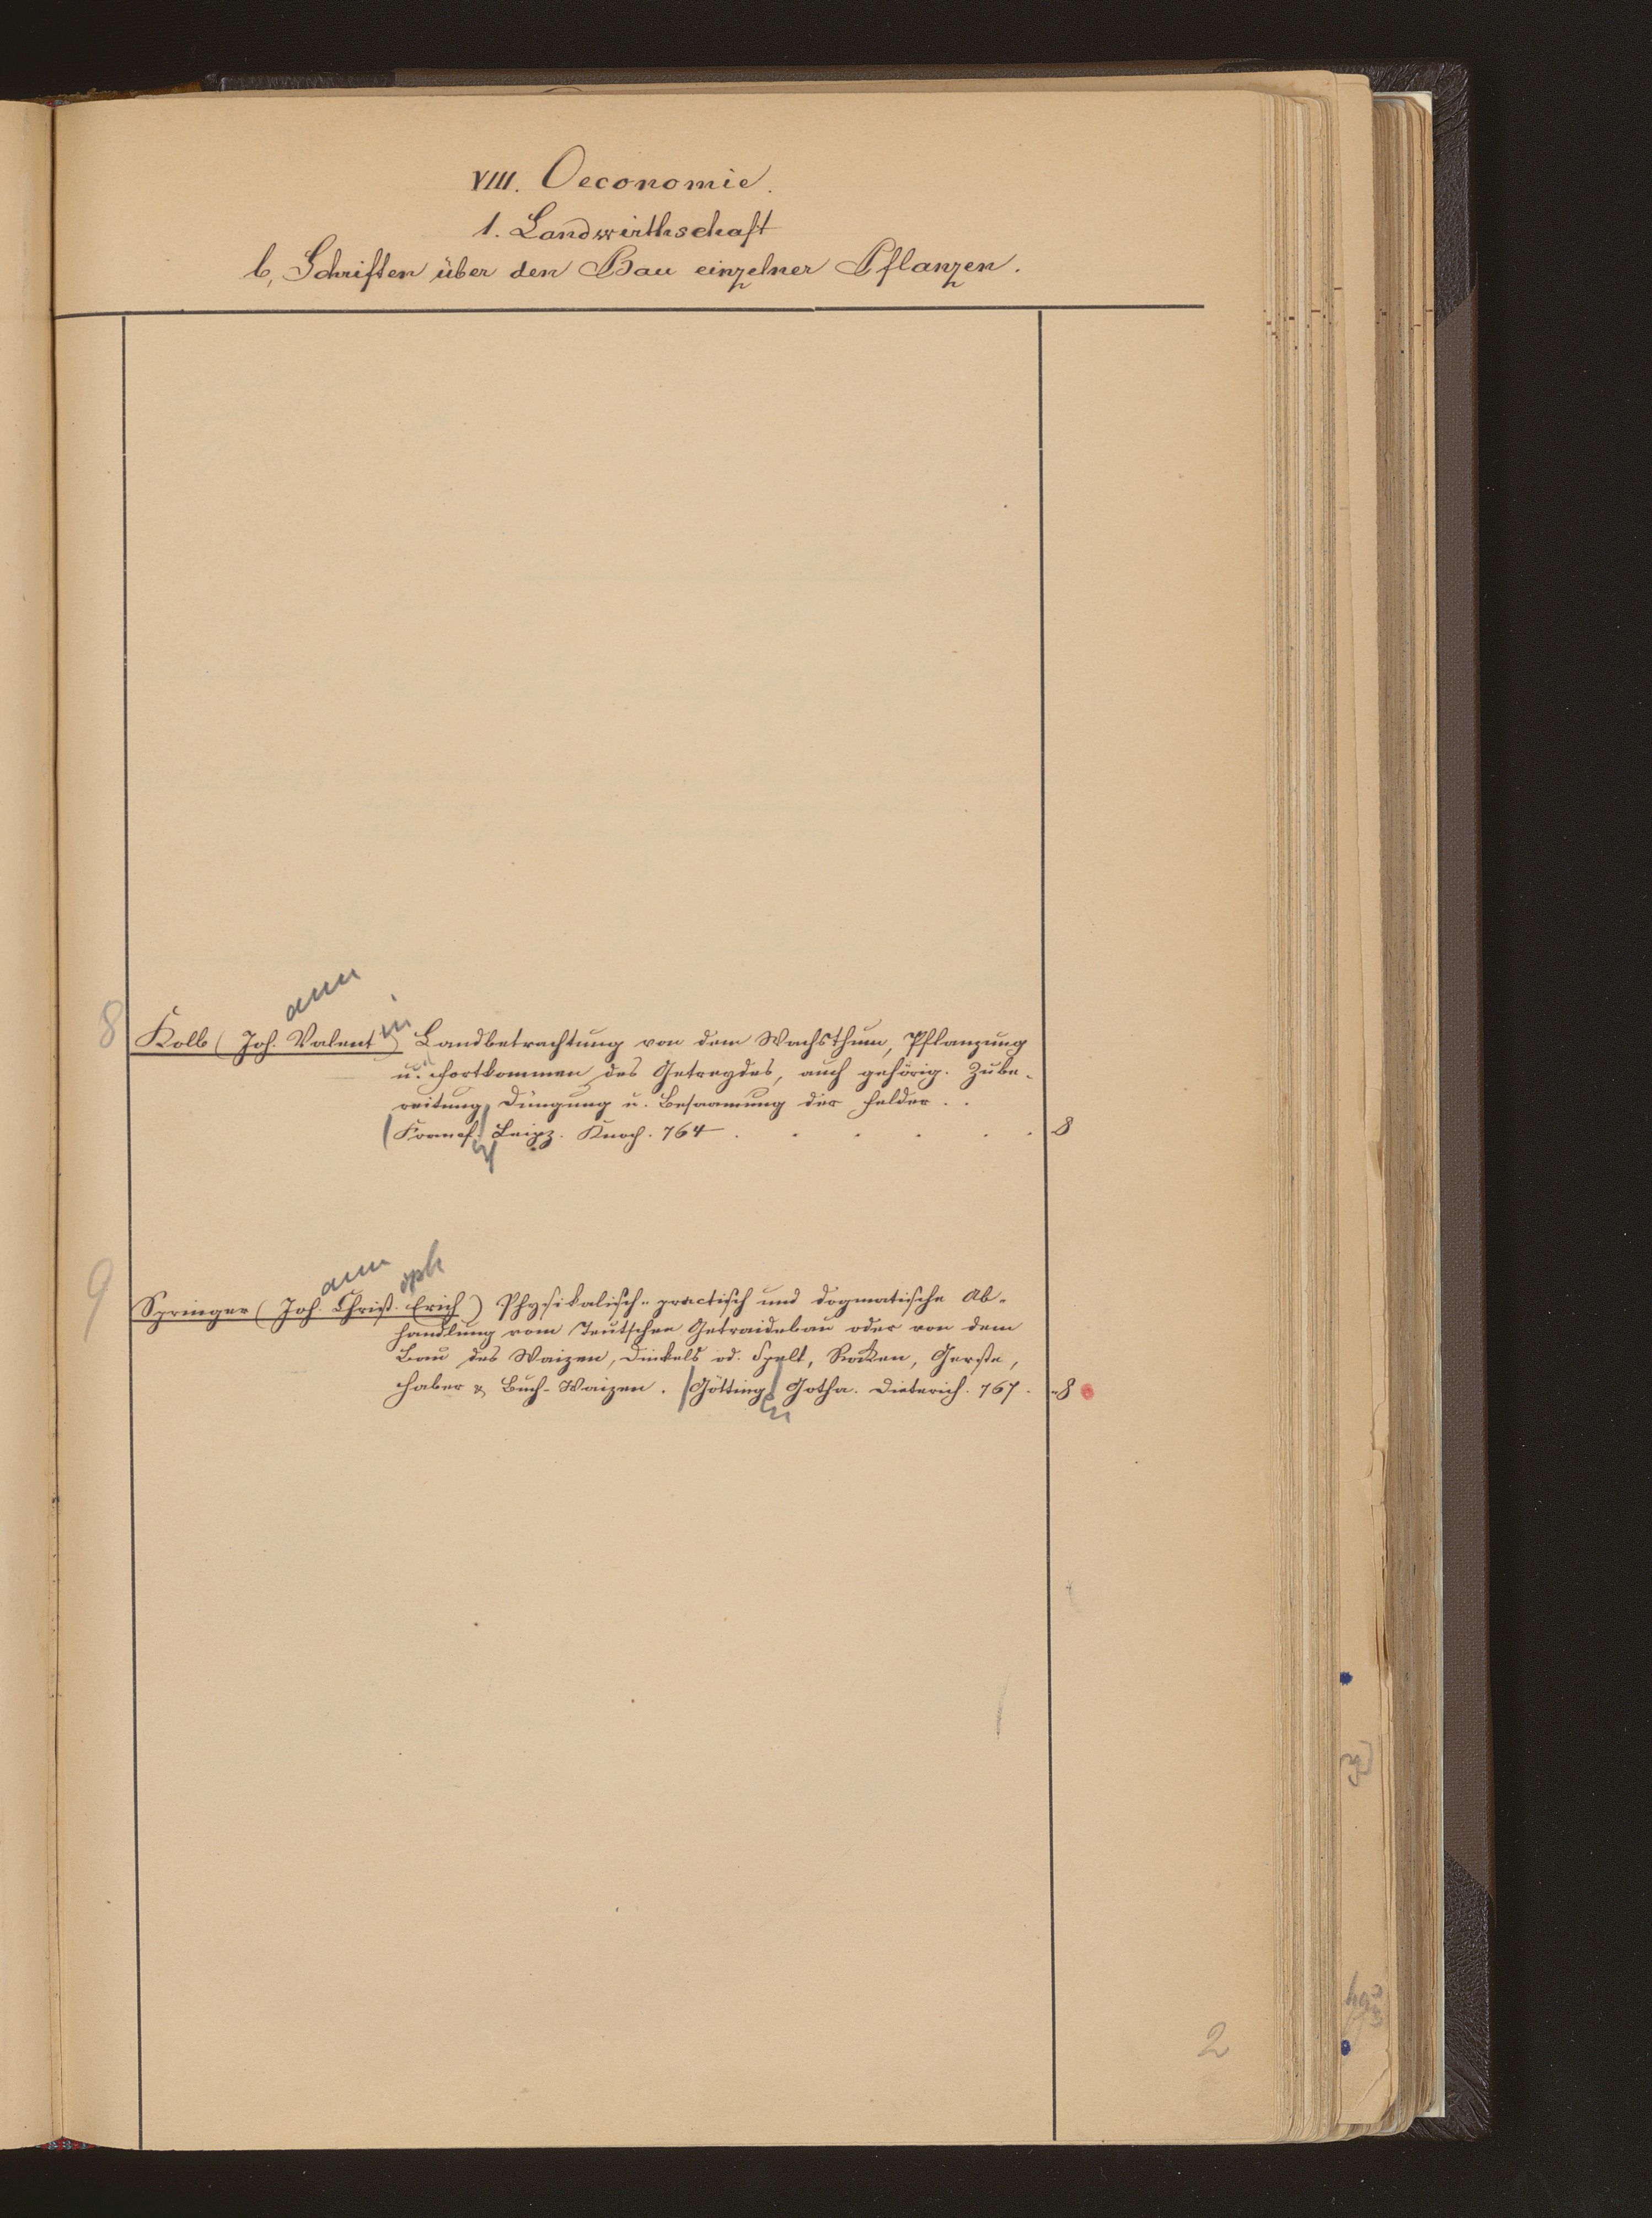 VIII. Oeconomie.
1. Landwirthschaft
b, Schriften über den Bau einzelner Pflanzen.
ann
8 Kolb (Joh. Valent in) Landbetrachtung von dem Wachsthum, Pflanzung
u. Fortkommen des Getreydes, auch gehörig. Zube-
reitung, Düngung u. Besaamung der Felder . .
(Francf.) Leipz. Knoch. 764 . . . . . . 8
ann oph
9 Springer (Joh. Christ. Erich) Physikalisch-practisch und dogmatische Ab-
handlung vom Teutschen Getraidebau oder von dem
Bau des Waizen, Dinkels od. Spelt, Rocken, Gerste,
Haber & Buch-Waizen. (Götting) Gotha. Dieterich. 767. 8
en
2